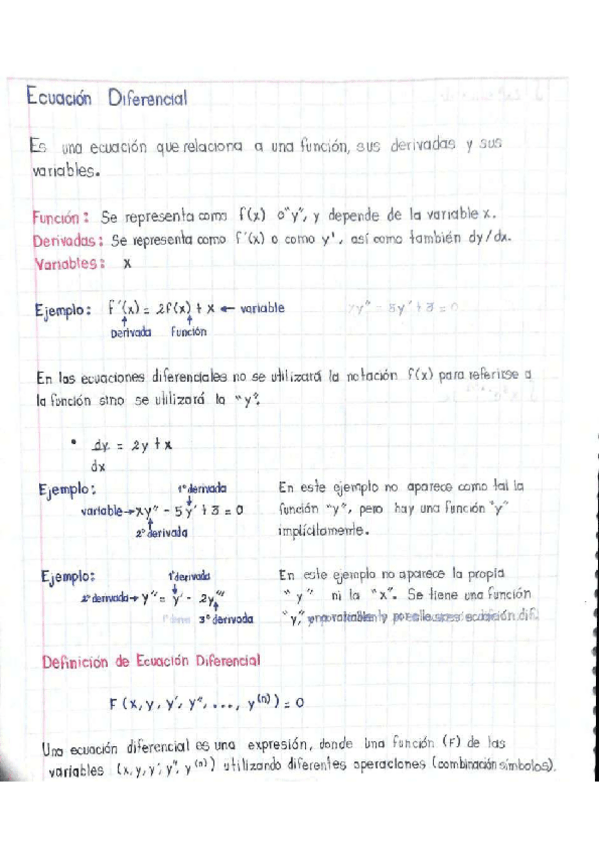 Ecuación Diferencial
Es una ecuación que relaciona a una función, sus derivadas y sus
variables.
Función: Se representa como f(x) o "y", y depende de la variable x.
Derivadas: Se representa como f'(x) o como y', así como también dy/dx.
Variables: x
Ejemplo: f'(x) = 2f(x) + x ← variable
Derivada Función
En las ecuaciones diferenciales no se utilizará la notación f(x) para referirse a
la función sino se utilizará la "y".
• dy = 2y + x
dx
Ejemplo: 1° derivada
variable→xy" - 5y' + 3 = 0
2° derivada
En este ejemplo no aparece como tal la
función "y", pero hay una función "y"
implícitamente.
Ejemplo: 1° derivada
2° derivada→ y" = y' - 2y'''
3° derivada
En este ejemplo no aparece la propia
"y" ni la "x". Se tiene una función
"y,"
Definición de Ecuación Diferencial
F(x, y, y', y", ..., y(n)) = 0
Una ecuación diferencial es una expresión, donde una función (F) de las
variables (x, y, y', y", y(n)) utilizando diferentes operaciones (combinación símbolos).